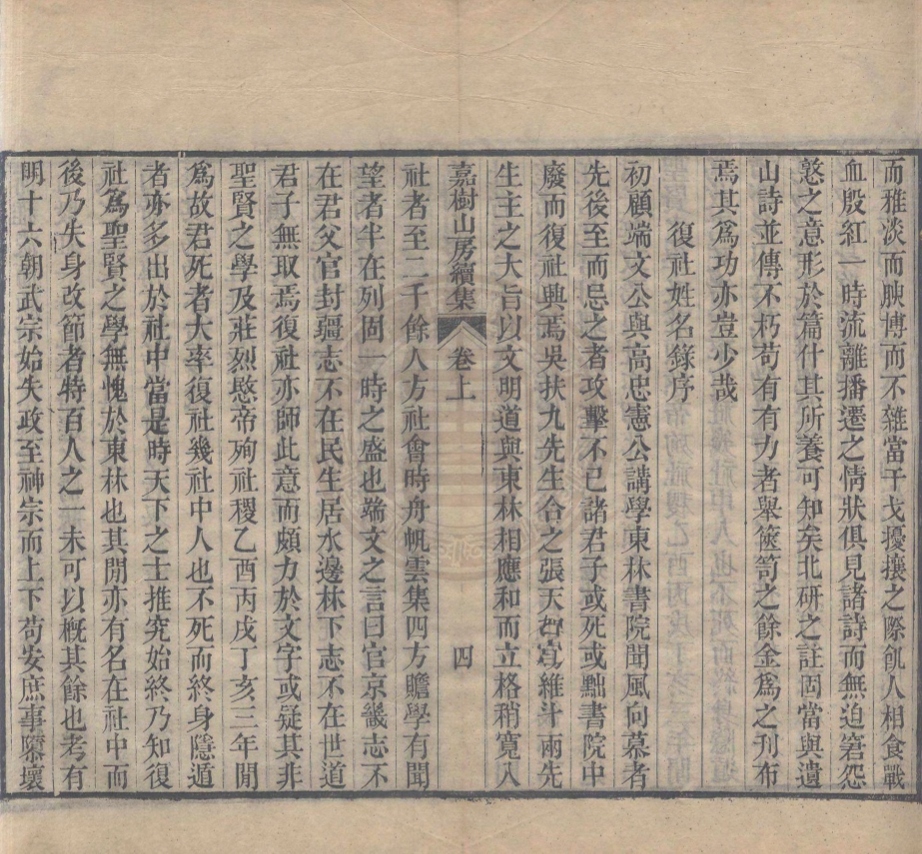 而雅淡而腴博而不雜當干戈擾攘之際飢人相食戰
血殷紅一時流離播遷之情狀俱見諸詩而無迫窘怨
憝之意形於篇什其所養可知矣北研之註固當與遺
山詩並傳不朽苟有有力者舉篋笥之餘金爲之刊布
焉其爲功亦豈少哉
復社姓名錄序
初顧端文公與高忠憲公講學東林書院聞風向慕者
先後至而忌之者攻擊不已諸君子或死或黜書院中
廢而復社興焉吳扶九先生合之張天如寘維斗兩先
生主之大旨以文明道與東林相應和而立格稍寬入
嘉樹山房續集 卷上 四
社者至二千餘人方社會時舟帆雲集四方贍學有聞
望者半在列固一時之盛也端文之言曰官京畿志不
在君父官封疆志不在民生居水邊林下志不在世道
君子無取焉復社亦師此意而頗力於文字或疑其非
聖賢之學及莊烈愍帝殉社稷乙酉丙戌丁亥三年閒
爲故君死者大率復社幾社中人也不死而終身隱遁
者亦多出於社中當是時天下之士推究始終乃知復
社爲聖賢之學無愧於東林也其閒亦有名在社中而
後乃失身改節者特百人之一未可以概其餘也考有
明十六朝武宗始失政至神宗而上下苟安庶事隳壞